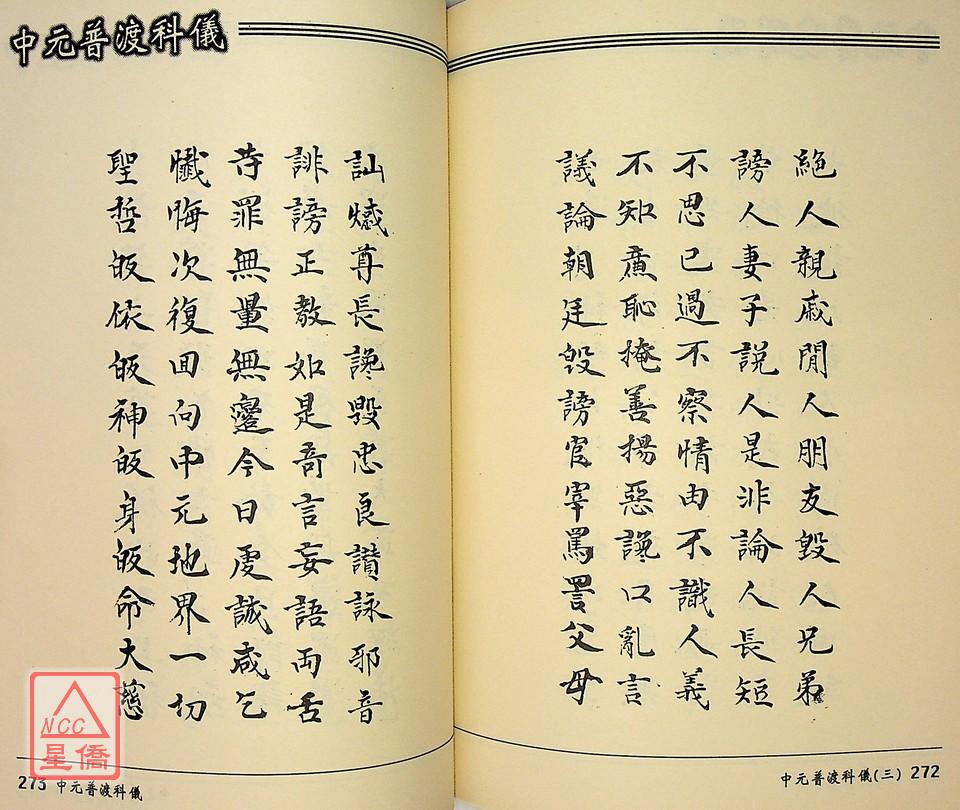 中元普渡科儀
絕人親戚間人朋友毀人兄弟
謗人妻子說人是非論人長短
不思己過不察情由不識人義
不知廉恥掩善揚惡讒口亂言
議論朝廷毀謗官宰罵詈父母
中元普渡科儀(三) 272
訕 尊長讒毀忠良讚詠邪音
誹謗正教如是奇言妄語両舌
等罪無量無邊今日虔誠咸乞
懺悔次復回向中元地界一切
聖哲皈依皈神皈身皈命大慈
273 中元普渡科儀
NCC
星僑